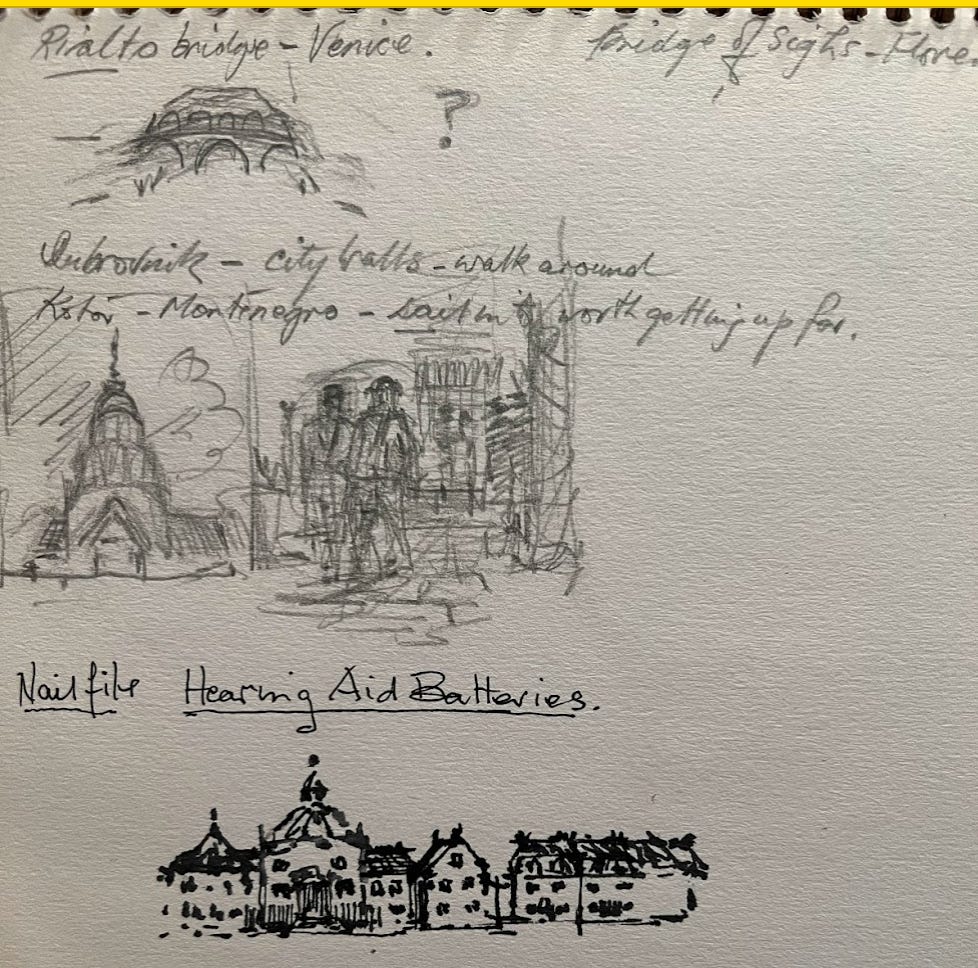 Rialto bridge - Venice.
Bridge of Sighs - Flore
?
Dubrovnik - city walls - walk around
Kotor - Montenegro - sail in worth getting up for.
Nail file Hearing Aid Batteries.